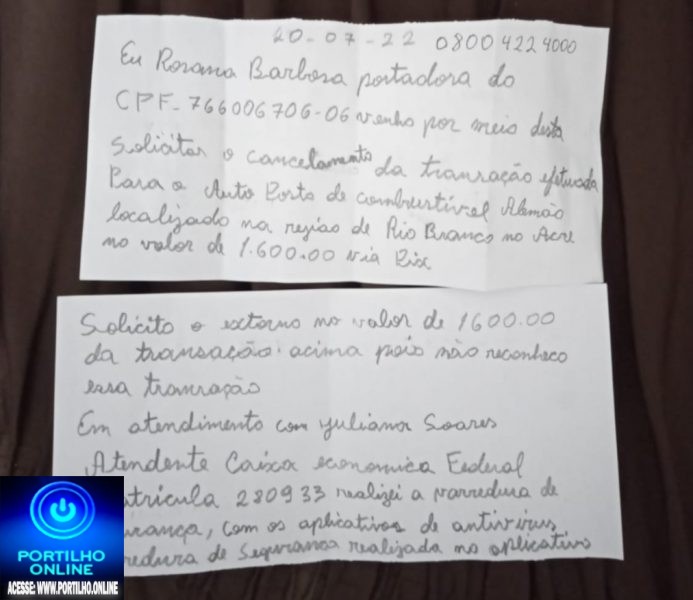 20-07-22 0800 422 4000
Eu Rosana Barbosa portadora do
CPF-766006706-06 venho por meio desta
Solicitar o cancelamento da transação efetuada
Para o Auto Posto de combustível Alemão
localizado na região de Rio Branco no Acre
no valor de 1.600.00 via Pix
Solicito o extorno no valor de 1600.00
da transação acima pois não reconheco
essa transação
Em atendimento com Yuliana Soares
Atendente Caixa economica Federal
atricula 280933 realizei a varredura de
urança, com os aplicativos de antivirus
redura de Segurança realizada no aplicativo
PORTILHO
ONLINE
ACESSE: WWW.PORTILHO.ONLINE